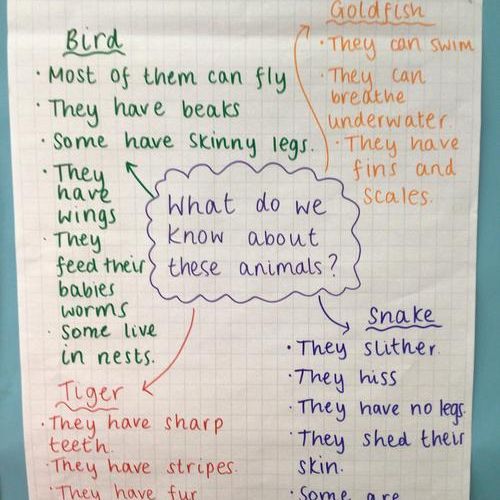 Bird
· Most of them can fly
· They have beaks
· Some have skinny legs.
· They
have
wings
· They
feed their
babies
worms
· Some live
in nests.
Goldfish
· They can swim
· They can
breathe
underwater.
· They have
fins and
scales.
What do we
know about
these animals?
Tiger
· They have sharp
teeth.
· They have stripes.
· They have fur
Snake
· They slither.
· They hiss
· They have no legs.
· They shed their
skin.
· Some are